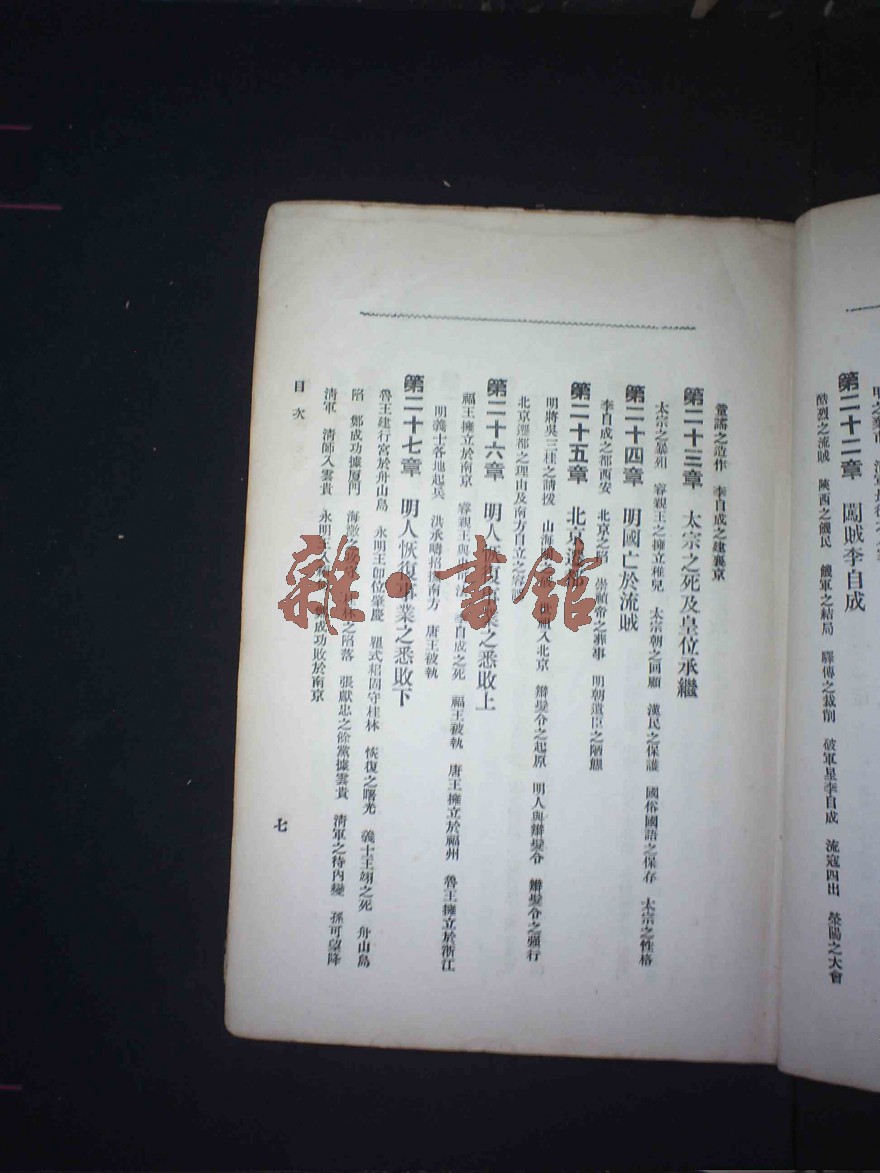 第二十二章　闖賊李自成
酷烈之流賊　陝西之饑民　饑軍之結局　驛傳之裁削　破軍星李自成　流寇四出　滎陽之大會
童謠之造作　李自成之建襄京
第二十三章　太宗之死及皇位承繼
太宗之暴殂　睿親王之擁立稚兒　太宗朝之回顧　漢民之保護　國俗國語之保存　太宗之性格
第二十四章　明國亡於流賊
李自成之都西安　北京之陷　崇禎帝之葬事　明朝遺臣之陋態
第二十五章　北京
明將吳三桂之請援　山海　入北京　辮髮令之起原　明人與辮髮令　辮髮令之強行
北京遷都之理由及南方自立之
第二十六章　明人恢復事業之悉敗上
福王擁立於南京　睿親王與　李自成之死　福王被執　唐王擁立於福州　魯王擁立於浙江
明義士各地起兵　洪承疇招撫南方　唐王被執
第二十七章　明人恢復事業之悉敗下
魯王建行宮於舟山島　永明王即位肇慶　瞿式耜固守桂林　恢復之曙光　義士王翊之死　舟山島
陷　鄭成功據厦門　海澄之　之陷落　張獻忠之餘黨據雲貴　清軍之待內變　孫可望降
清軍　清師入雲貴　永明王　成功敗於南京
目次
七
雜·書館